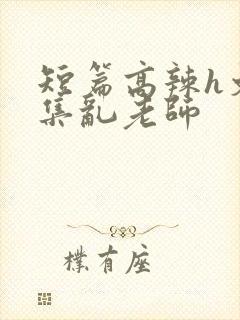 短篇高辣h文
集乱老师
樸有座